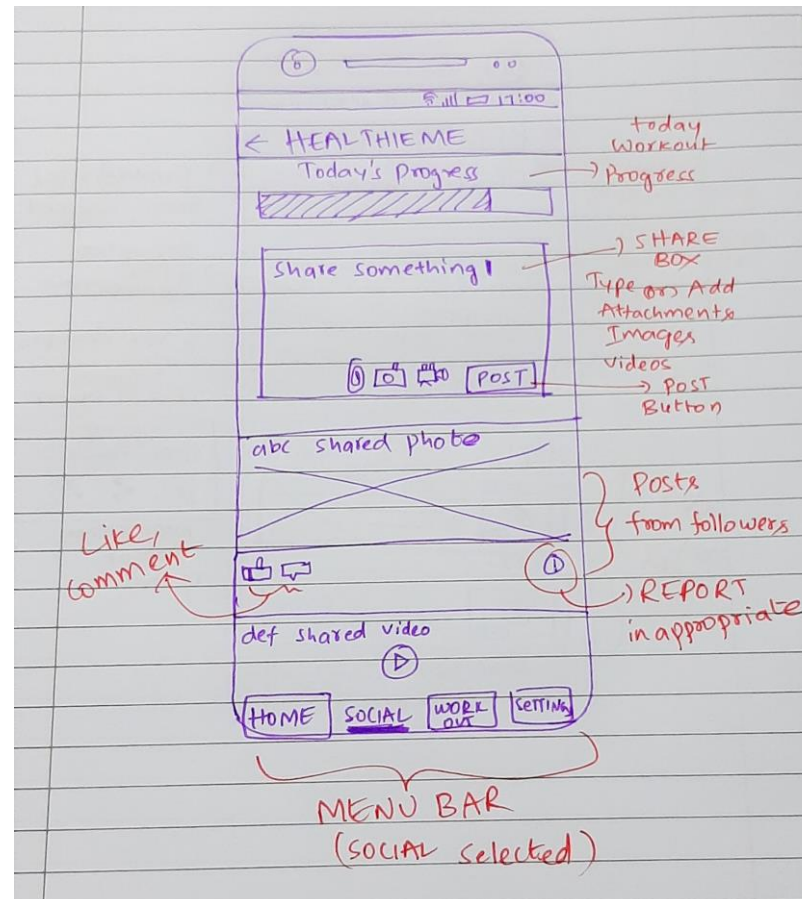 17:00
← HEALTHIEME
Today's Progress
today
Workout
Progress
Share something
SHARE
BOX
Type or Add
Attachments
Images
Videos
POST
POST
Button
abc shared photo
Posts
from followers
Like,
comment
REPORT
inappropriate
def shared video
HOME
SOCIAL
WORK
OUT
SETTING
MENU BAR
(SOCIAL selected)